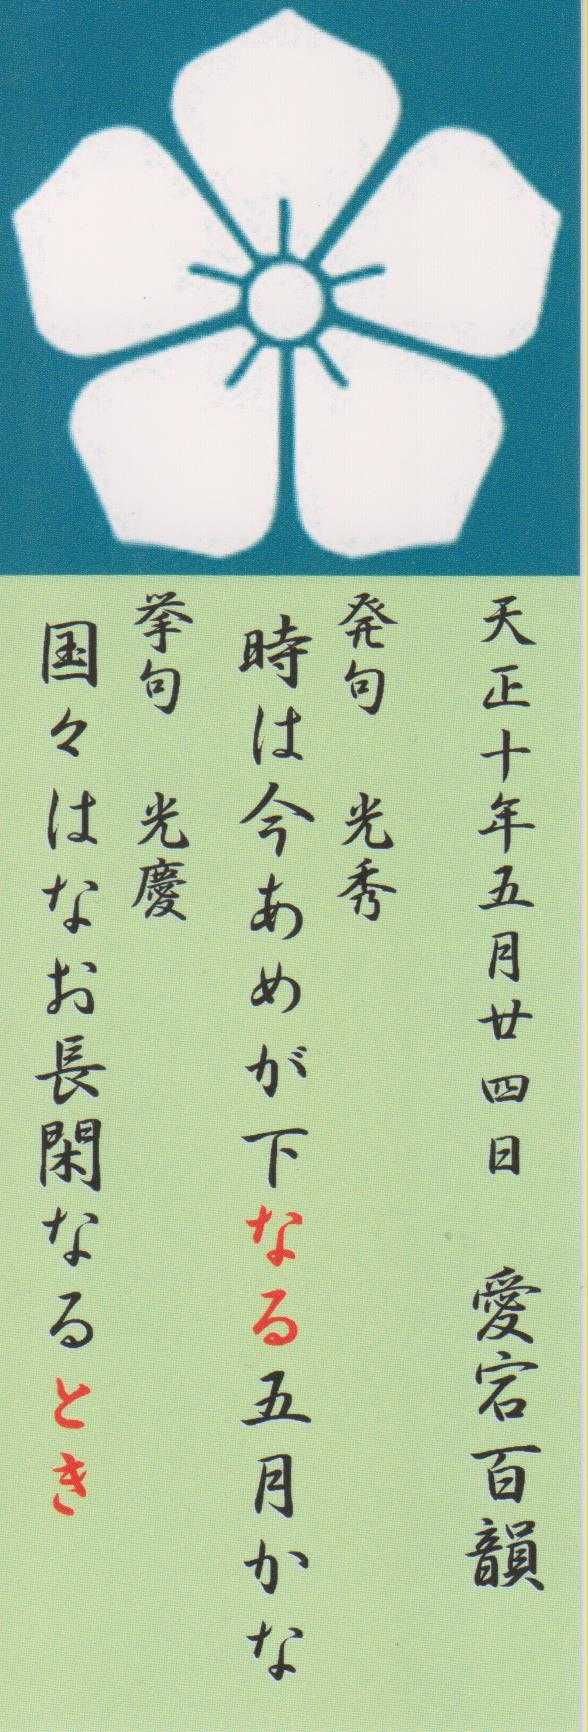 天正十年五月廿四日　愛宕百韻
発句　光秀
時は今あめが下なる五月かな
挙句　光慶
国々はなお長閑なるとき